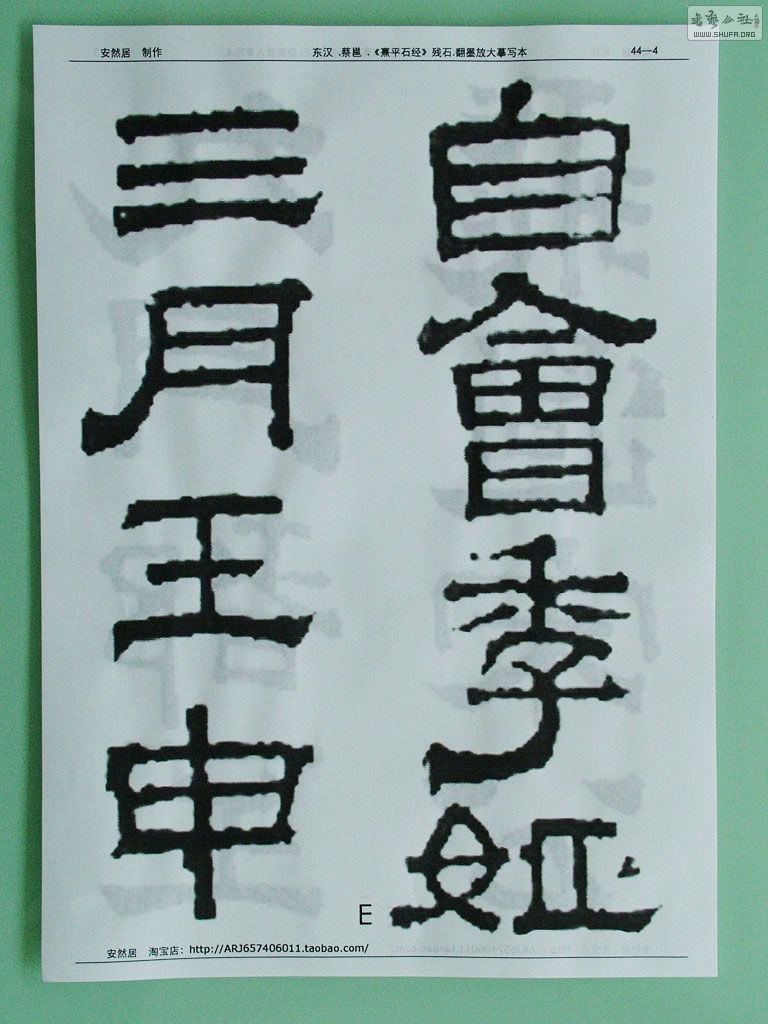 書藝公社
WWW.SHUFA.ORG
安然居 制作 东汉 .蔡邕 .《熹平石经》残石.翻墨放大摹写本 44—4
自會季姬
三月壬申
E
安然居 淘宝店：http://ARJ657406011.taobao.com/